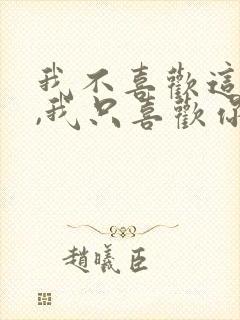 我不喜歡這
,我只喜歡你
趙曦臣